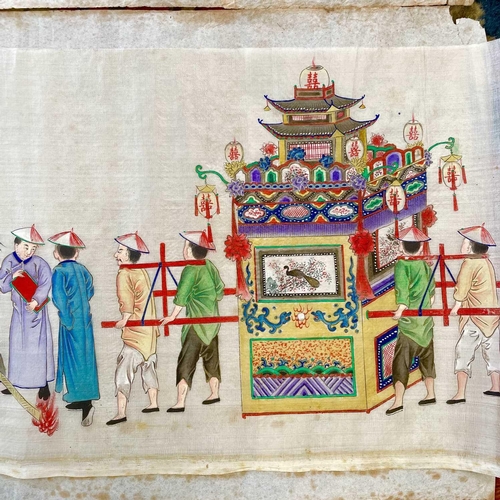 囍
囍
囍
囍
囍
囍
囍